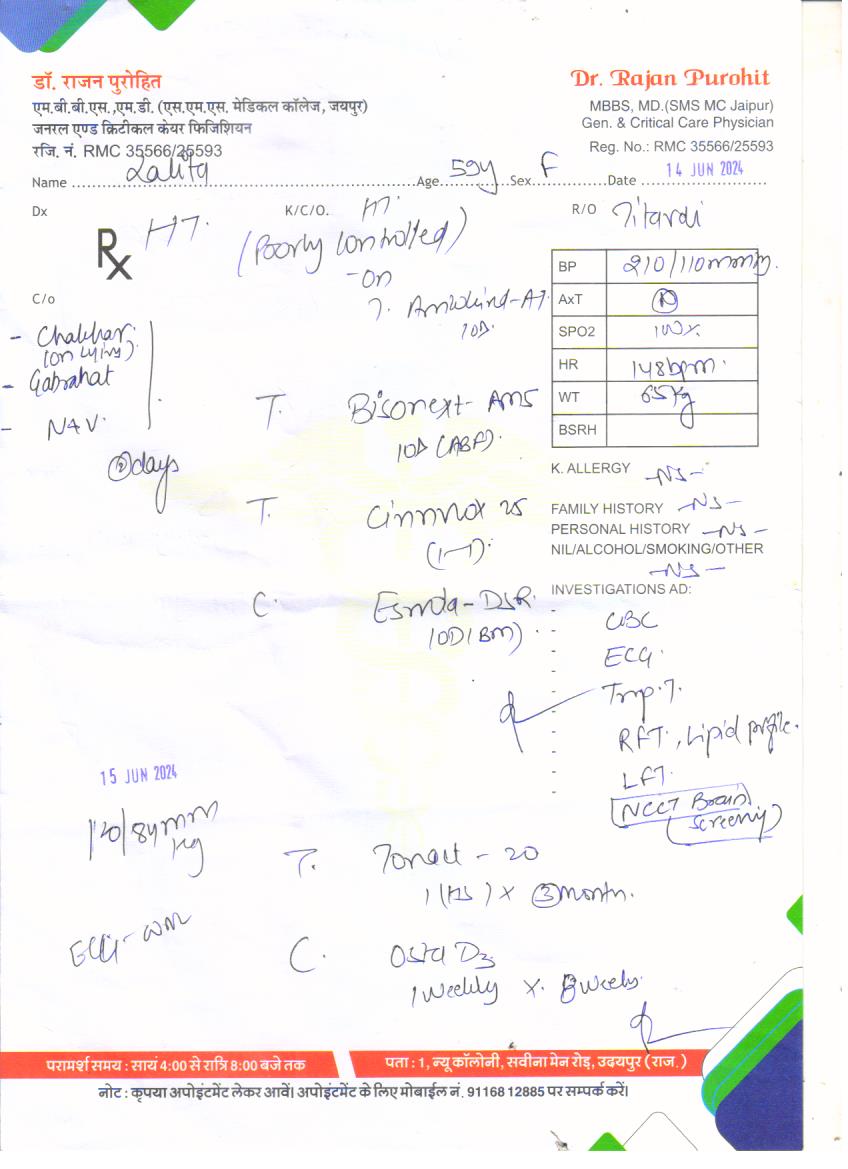 डॉ. राजन पुरोहित
एम.बी.बी.एस.,एम.डी. (एस.एम.एस. मेडिकल कॉलेज, जयपुर)
जनरल एण्ड क्रिटीकल केयर फिजिशियन
रजि. नं. RMC 35566/25593
Dr. Rajan Purohit
MBBS, MD.(SMS MC Jaipur)
Gen. & Critical Care Physician
Reg. No.: RMC 35566/25593
Name Lalita Age 59y Sex F Date 14 JUN 2024
Dx HT.
K/C/O. HT.
(Poorly Controlled)
-on
T. Amlokind-AT
1OD.
R/O Titardi
Rx
BP 210/110mmHg.
AxT N
SPO2 100%
HR 148bpm.
WT 65kg
BSRH
C/o
- Chakkar
(on lying).
- Gabrahat
- N&V.
2days
T. Bisonext-AM5
1OD (ABF).
T. Cinnrox 25
(1-1).
C. Esmda-DSR.
1OD(BM)
K. ALLERGY -NS-
FAMILY HISTORY -NS-
PERSONAL HISTORY -NS-
NIL/ALCOHOL/SMOKING/OTHER
-NS-
INVESTIGATIONS AD:
CBC
ECG.
Trop.T.
RFT., Lipid profile.
LFT.
NCCT Brain
(Screening)
15 JUN 2024
120/84mm
Hg
ECG- WNL
T. Tonact - 20
1 (HS) x 3 month.
C. Osta D3
1 Weekly x. 8 Weeks.
परामर्श समय : सायं 4:00 से रात्रि 8:00 बजे तक
पता : 1, न्यू कॉलोनी, सवीना मेन रोड़, उदयपुर (राज.)
नोट : कृपया अपोइंटमेंट लेकर आवें। अपोइंटमेंट के लिए मोबाईल नं. 91168 12885 पर सम्पर्क करें।